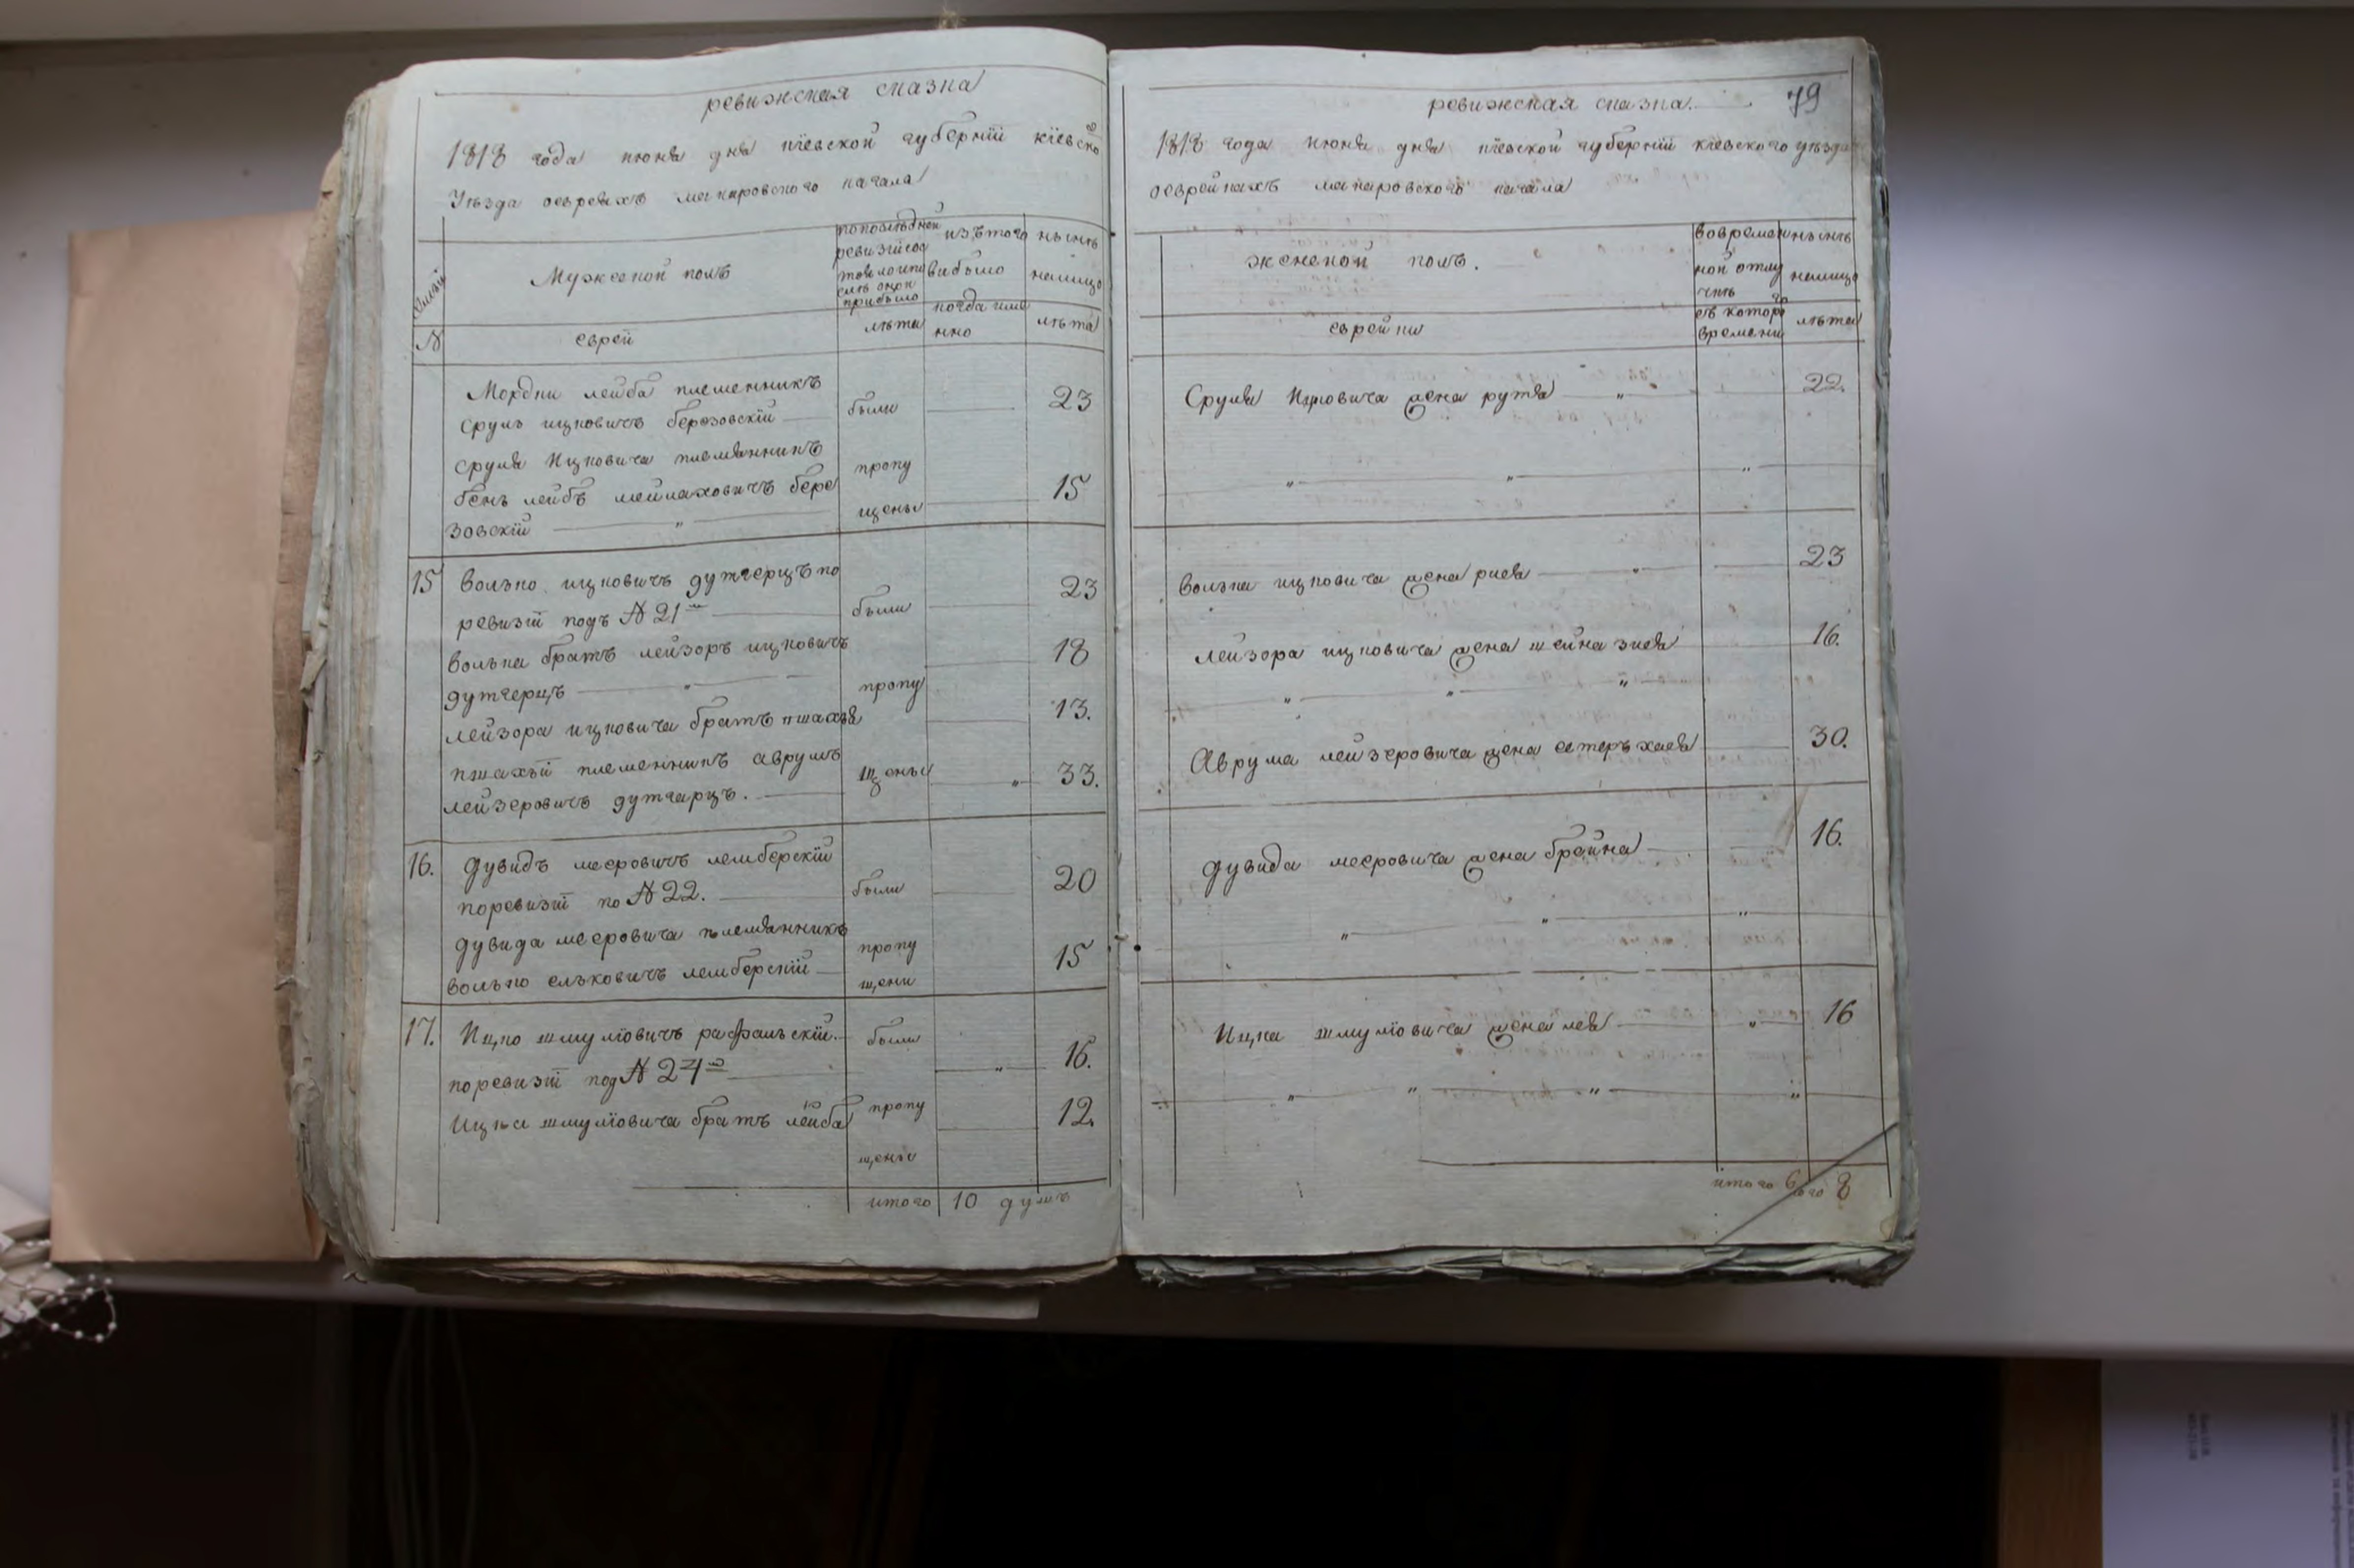 ревижская сказка
1818 года июня дня киевской губернїй кіевско
го
Уезда оевреяхъ макаровского кагала
Мужеской полъ
попоследней
ревизій со
изътого
выбыло
ныне
налицо
прибыло
когда име
нно
лета
лета
№
еврей
Мордки лейба племенникъ
Сруль ицковичъ березовскій
были
23
Сруля Ицковича племянникъ
бень лейбъ мейлаховичъ бере
зовскій
пропу
щены
15
15
Волько ицковичъ дутчерцъ по
ревизіи подъ № 21м
были
23
Волька братъ лейзоръ ицковичъ
дутчерцъ
18
пропу
лейзора ицковича братъ пшахъя
13.
пшахъй племенникъ аврумъ
лейзеровичъ дутчарцъ.
щены
33.
16.
Дувидъ мееровичъ лемберскій
поревизіи по № 22.
были
20
дувида мееровича племянникъ
волько ельковичъ лемберскій
пропу
щени
15
17.
Ицко шмулїовичъ рафальскій.
поревизіи под № 24м
были
16.
Ицька шмулїовича братъ лейба
пропу
щены
12.
итого 10 душъ
ревижская сказка. 79
1818 года июня дня кіевской губерній кіевского уезда
оеврейкахъ макаровского кагала
женской полъ.
вовремен
ной отлу
чке
ныне
налицо
еврейки
съ которо
го
времени
лета
Сруля Ицковича жена рутя 22.
волька ицковича жена рися 23
лейзора ицковича жена шейна зися 16.
Аврума лейзеровича жена естеръ хася 30.
дувида мееровича жена брайна 16.
Ицка шмулїовича жена лея 16
итого 6
того 8